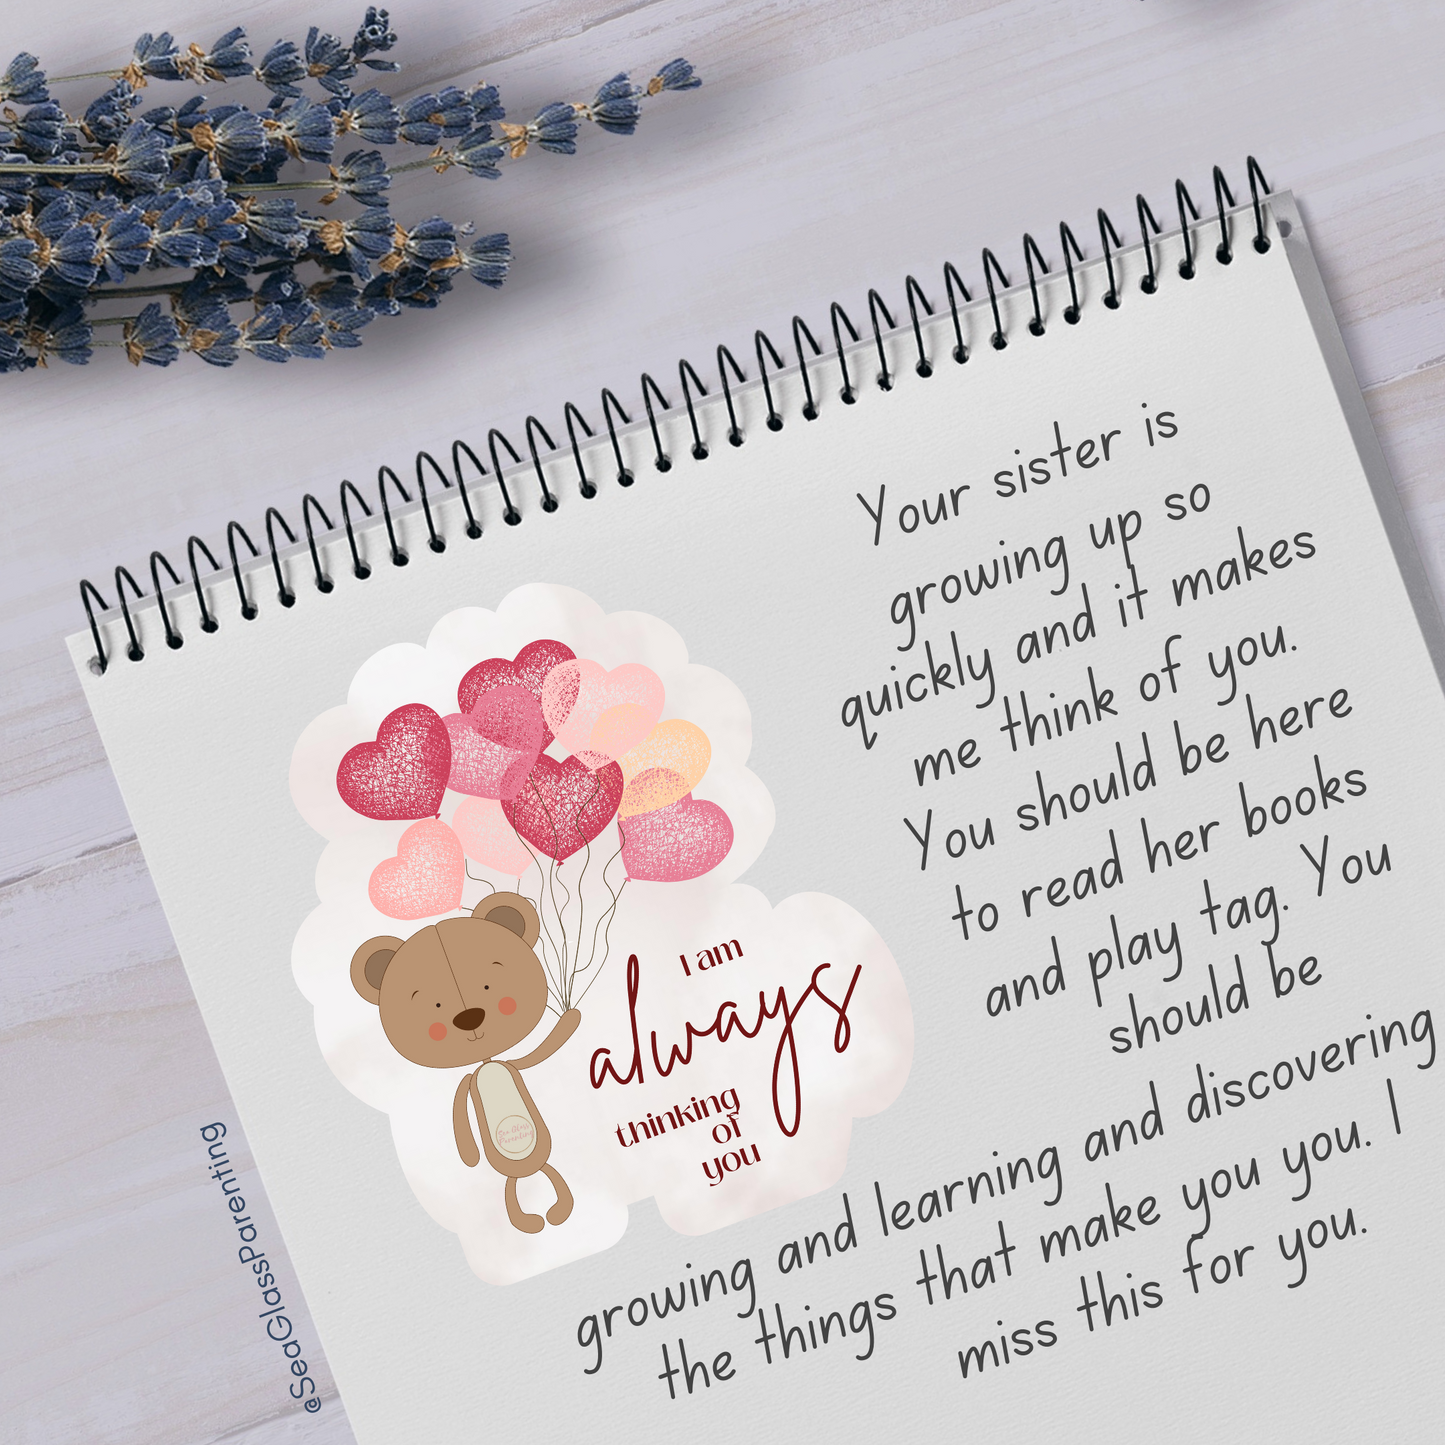 Your sister is
growing up so
quickly and it makes
me think of you.
You should be here
to read her books
and play tag. You
should be
growing and learning and discovering
the things that make you you. I
miss this for you.
I am
always
thinking
of
you
Sea Glass
Parenting
@SeaGlassParenting